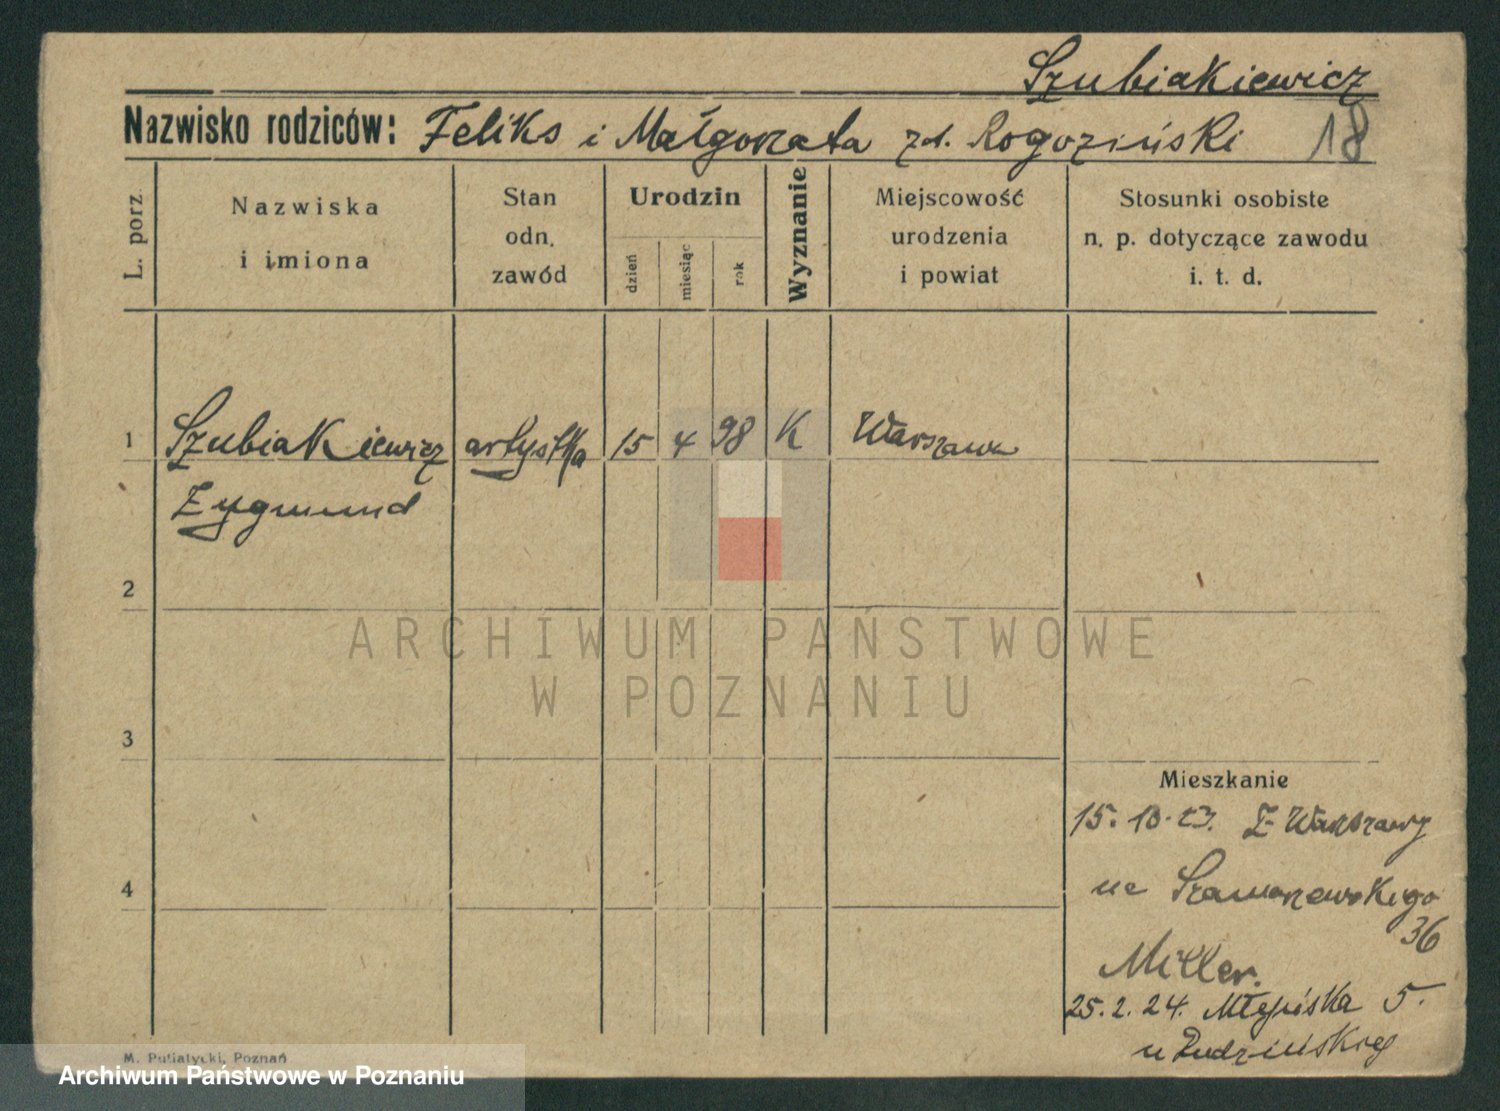 Szubiakiewicz
Nazwisko rodziców: Feliks i Małgorzata zd. Rogoziński 18
L. porz.
Nazwiska
i imiona
Stan
odn.
zawód
Urodzin
dzień
miesiąc
rok
Wyznanie
Miejscowość
urodzenia
i powiat
Stosunki osobiste
n. p. dotyczące zawodu
i. t. d.
1 Szubiakiewicz artystka 15 4 98 K Warszawa
Zygmund
2
ARCHIWUM PAŃSTWOWE
W POZNANIU
3
Mieszkanie
15. 10. 23. Z Warszawy
4
na Szamarzewskigo
36
Miller.
25. 2. 24. 5.
u
M. Putiatycki, Poznań
Archiwum Państwowe w Poznaniu